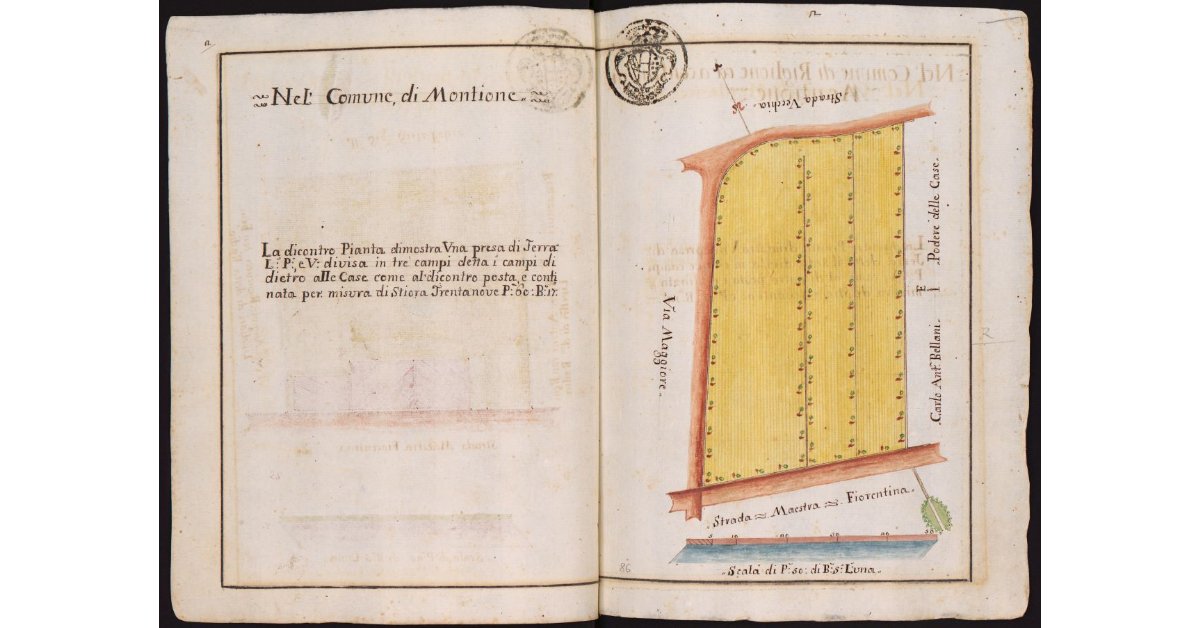 Nel Comune, di Montione
La dicontro Pianta dimostra Vna presa di Terra
L: P:, e V: divisa in tre campi detta i campi di
dietro alle Case come al dicontro posta, e confi
nata per misura di Stiora Trentanove P: 60: B: 17.
Strada Vecchia
Via Maggiore
Podere delle Case.
E
Carlo Ant.º Bellani.
Strada Maestra Fiorentina.
Scala di P: 50: di B: 5: L'una
86